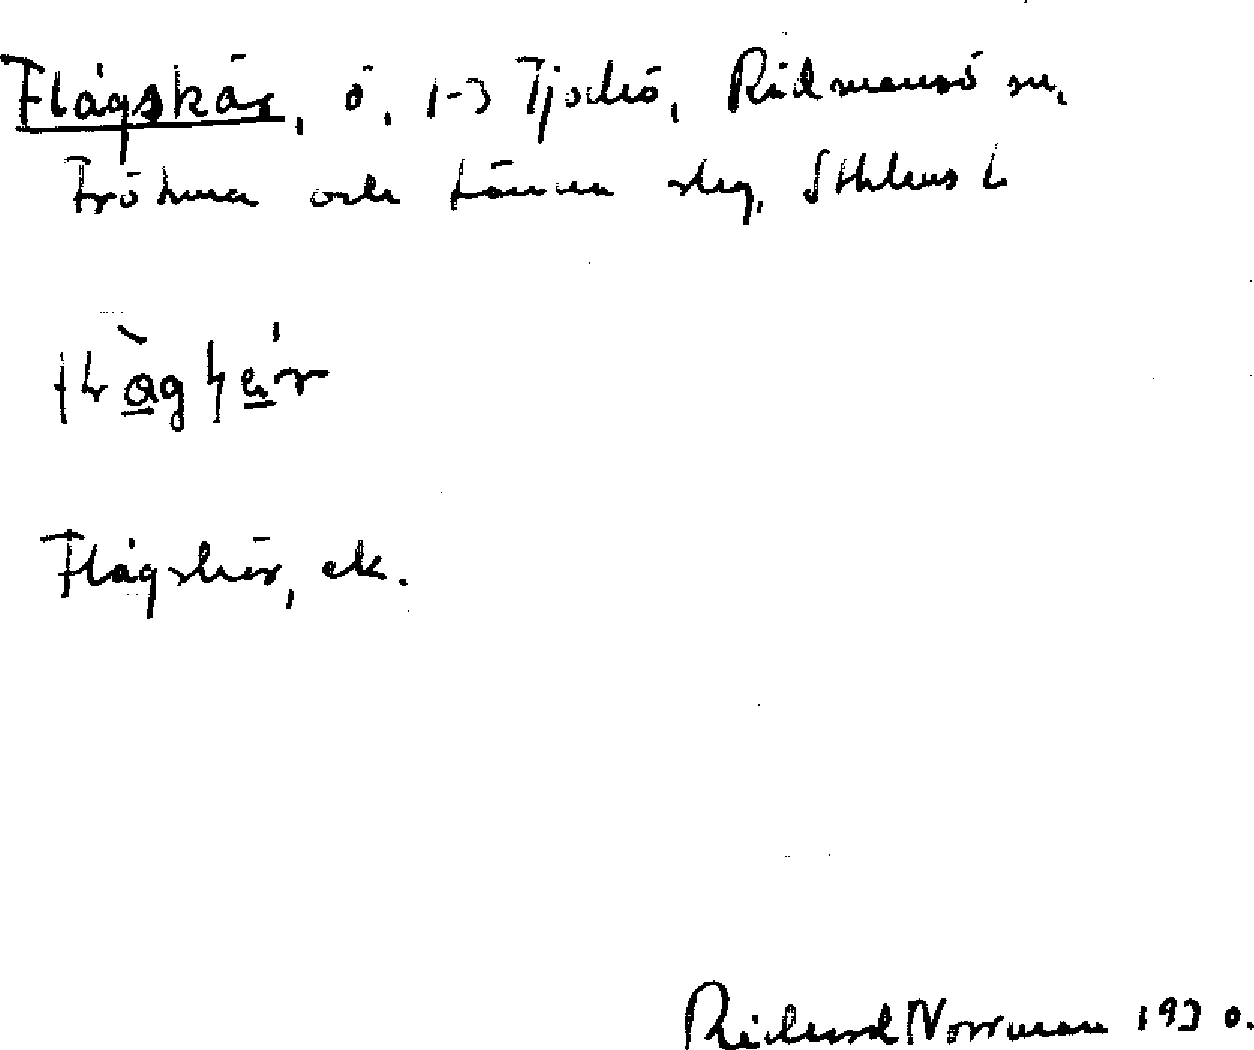 Flågskär, ö, 1-3 Tjockö, Rådmansö sn,
Frötuna och Länna slg, Sthlms L
Flågskär, ek.
Richard Norrman 1930.